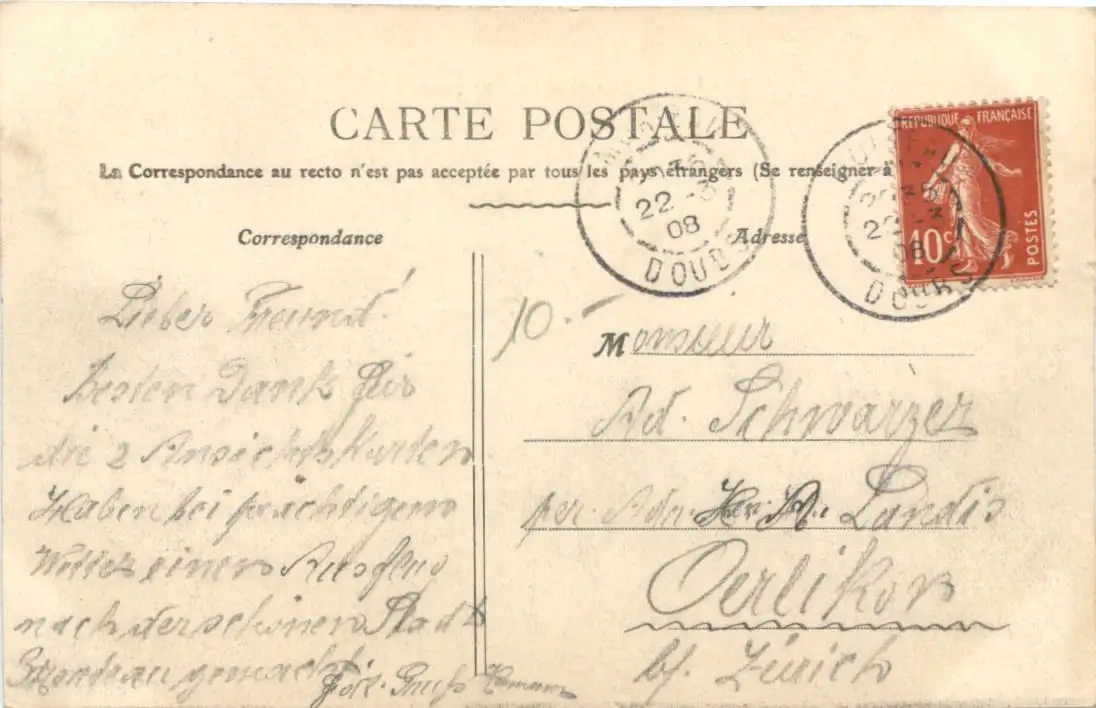 CARTE POSTALE
La Correspondance au recto n'est pas acceptée par tous les pays étrangers (Se renseigner à
Correspondance
Adresse
REPUBLIQUE FRANÇAISE
10 c.
POSTES
22 -3
08
DOUBS
08
DOUBS
Lieber Freund!
besten Dank für
die 2 Ansichtskarten
Haben bei prächtigem
Wetter einen Ausflug
nach der schönen Stadt
gemacht
10.-
Monsieur
Ad. Schwarzer
per. Adr. Hrn. A. Landis
Oerlikon
bf. Zürich